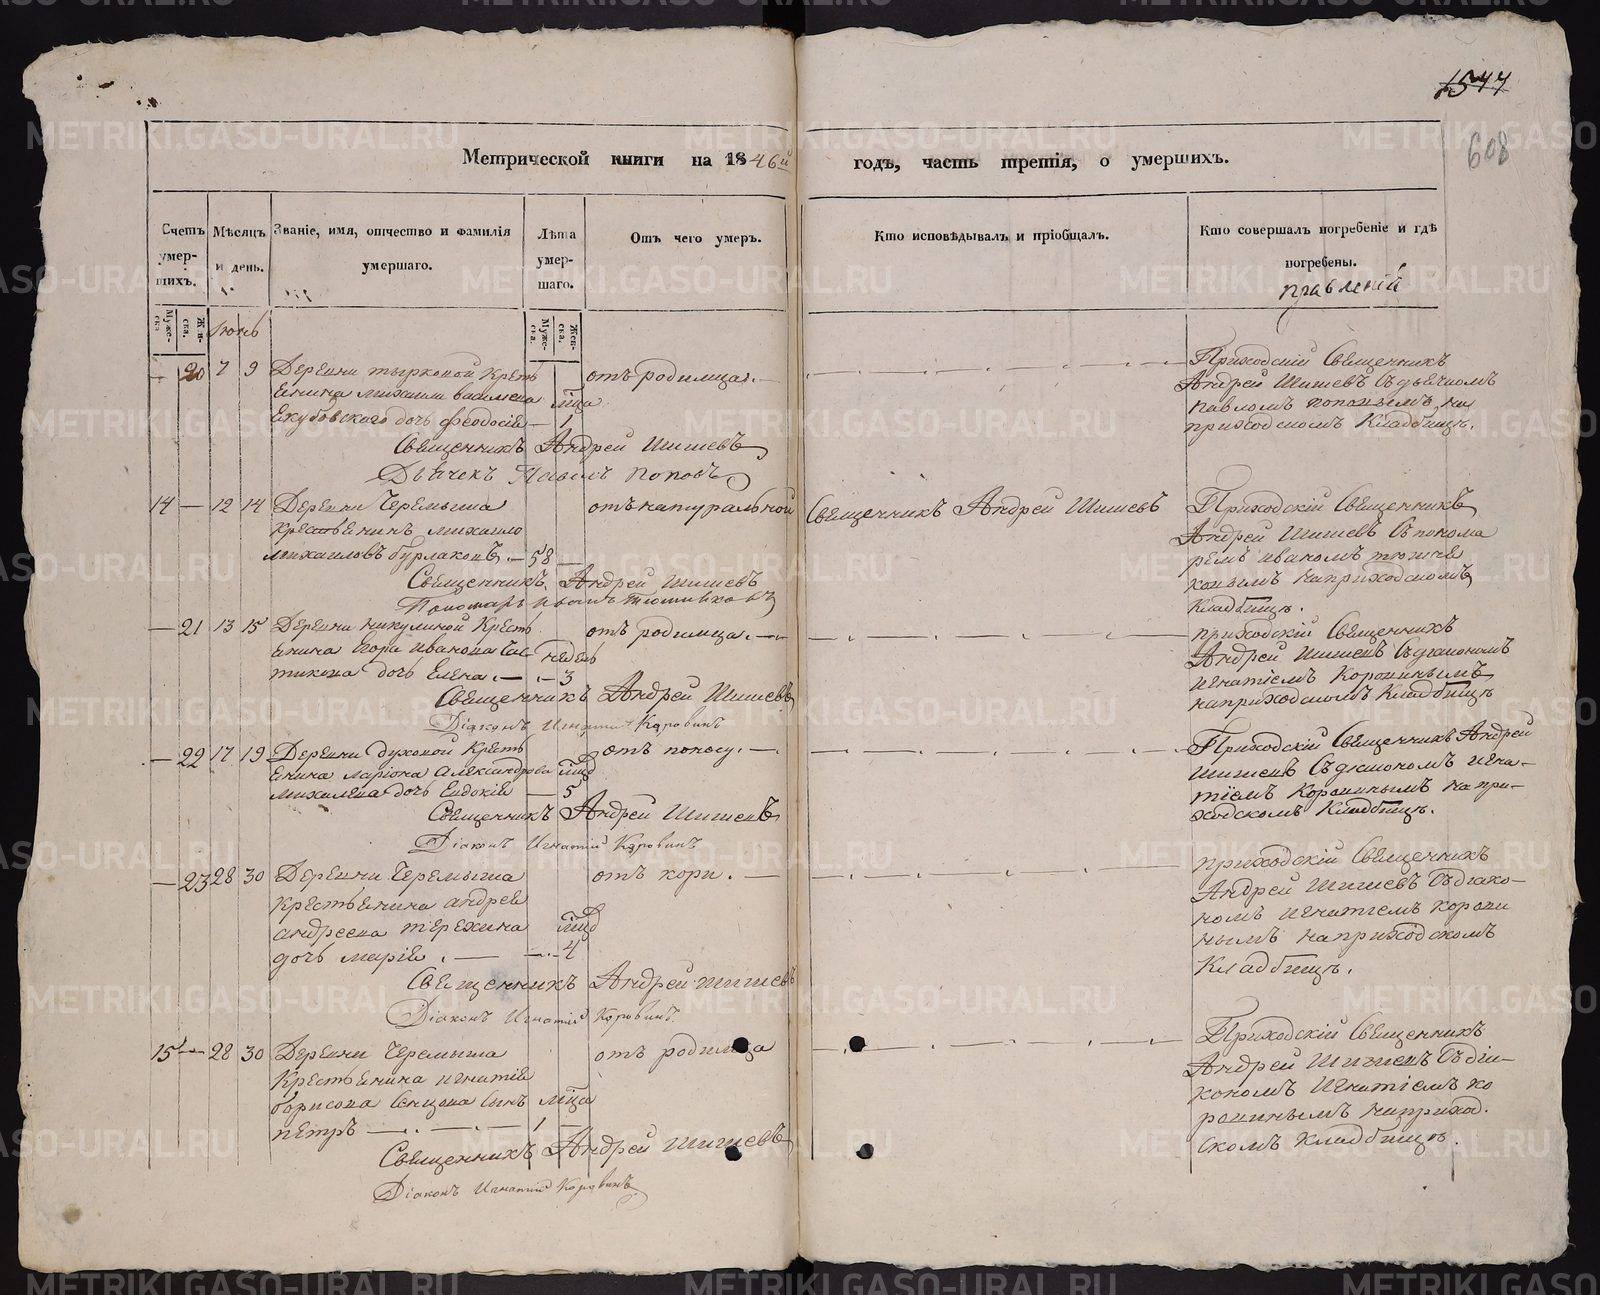 1544
608
Метрической книги на 1846й годъ, часть третія, о умершихъ.
Счетъ умер-шихъ.
Мѣсяцъ и день.
Званіе, имя, отчество и фамилія умершаго.
Лѣта умер-шаго.
Отъ чего умеръ.
Кто исповѣдывалъ и пріобщалъ.
Кто совершалъ погребеніе и гдѣ погребены.
Муже-ска
Жен-ска.
Муже-ска.
Жен-ска.
Іюнь
— 20 7 9 Деревни Кресть
янина Михаила Васильева
Якубовскаго дочь Феодосія — 1
отъ родимца. —
Приходскій Священникъ
Андрей Шишевъ съ дьячкомъ
Павломъ Поповымъ на
приходскомъ Кладбищѣ.
Священникъ Андрей Шишевъ
Дьячекъ Павелъ Поповъ
14 — 12 14 Деревни Черемыша
крестьянинъ Михаило
Михаиловъ Бурлаковъ. — 58 —
отъ натуральной
Священникъ Андрей Шишевъ
Приходскій Священникъ
Андрей Шишевъ съ понома
ремъ Иваномъ
на приходскомъ
Кладбищѣ.
Священникъ Андрей Шишевъ
Пономарь Иванъ
— 21 13 15 Деревни Никулиной Кресть
янина Егора Иванова
дочь Елена. — 3
недель
отъ родимца. —
приходскій Священникъ
Андрей Шишевъ съ діакономъ
Игнатіемъ Коровинымъ
на приходскомъ Кладбищѣ
Священникъ Андрей Шишевъ
Діаконъ Игнатій Коровинъ
— 22 17 19 Деревни Духовой Кресть
янина Ларіона Александрова
Михалева дочь Евдокія — 5
отъ поносу. —
Приходскій Священникъ Андрей
Шишевъ съ діакономъ Игна-
тіемъ Коровинымъ на при-
ходскомъ Кладбищѣ.
Священникъ Андрей Шишевъ
Діаконъ Игнатій Коровинъ
— 23 28 30 Деревни Черемыша
крестьянина Андрея
Андреева Терехина
дочь Марія. — 4
отъ кори. —
приходскій Священникъ
Андрей Шишевъ съ діако-
номъ Игнатіемъ Корови
нымъ на приходскомъ
Кладбищѣ.
Священникъ Андрей Шишевъ
Діаконъ Игнатій Коровинъ
15 — 28 30 Деревни Черемыша
Крестьянина Игнатія
Борисова сынъ
Петръ — 1 —
отъ родимца
Приходскій Священникъ
Андрей Шишевъ съ діа-
кономъ Игнатіемъ Ко
ровинымъ на приход.
скомъ кладбищѣ.
Священникъ Андрей Шишевъ
Діаконъ Игнатій Коровинъ
METRIKI.GASO-URAL.RU